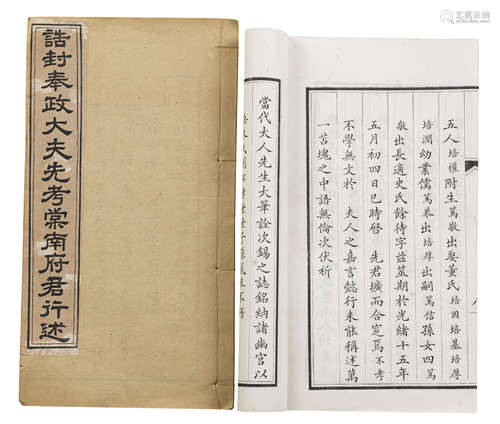 誥封奉政大夫先考棠南府君行述
五人培權附生篤敬出娶董氏培因培基培厚
培潤幼業儒篤恭出培厚出嗣篤信孫女四篤
敬出長適史氏餘待字茲筮期於光緒十五年
五月初四日巳時啓 先君壙而合窆焉不孝
不學無文於 夫人之嘉言懿行未能稱述萬
一苫塊之中語無倫次伏祈
當代大人先生大筆詮次錫之誌銘納諸幽宮以
艺狐在线